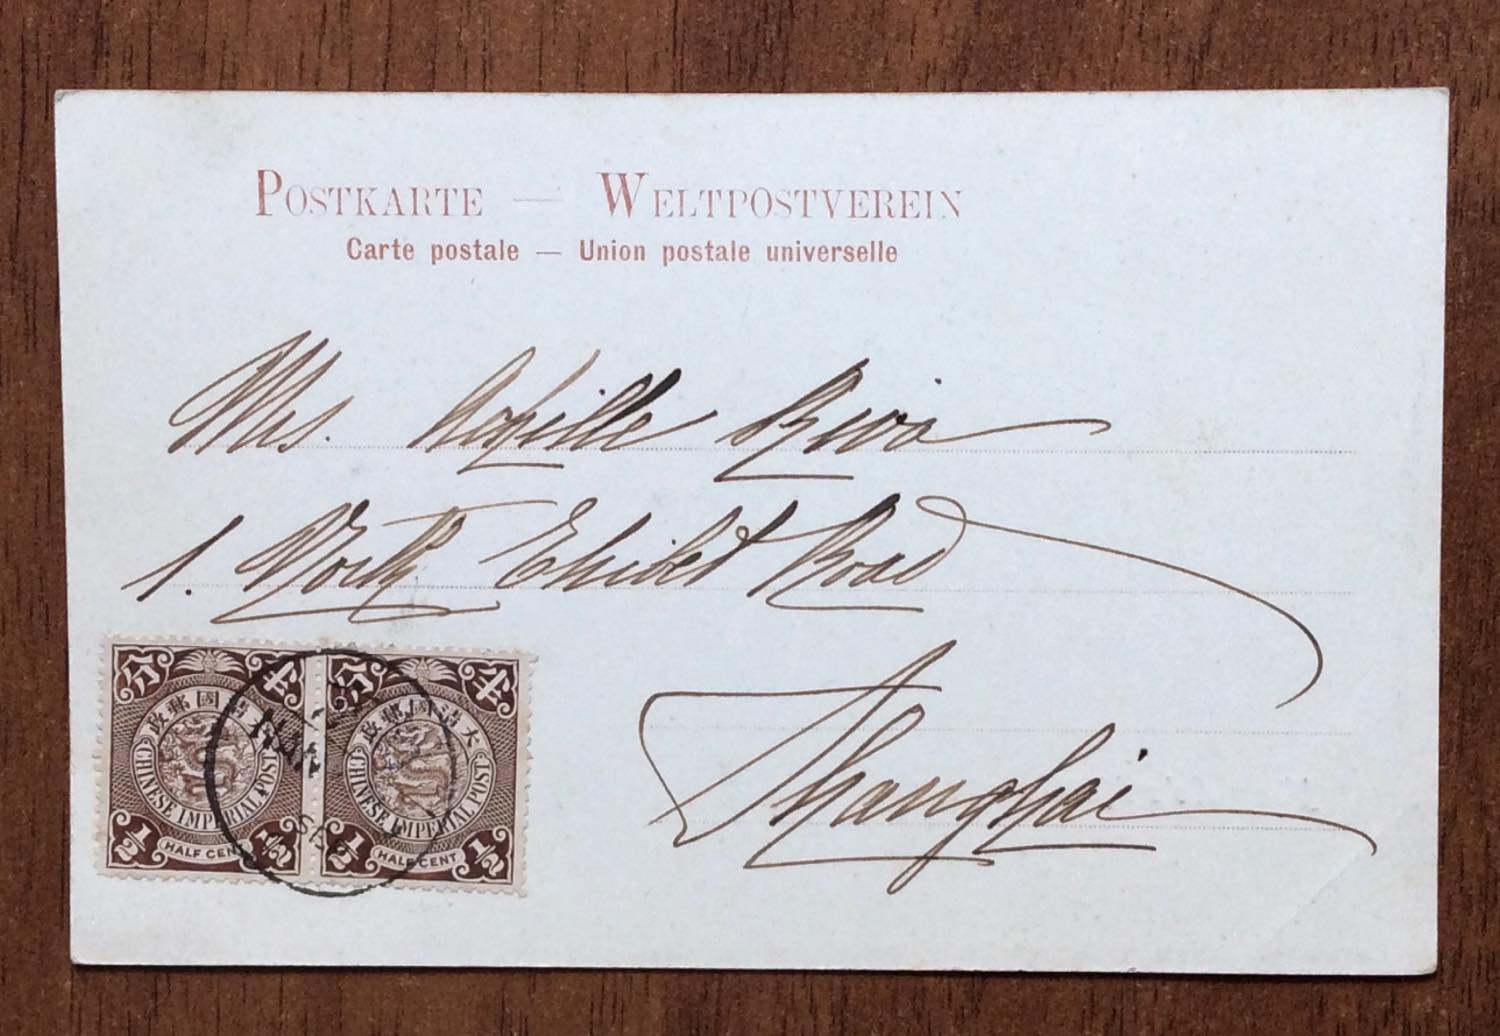 POSTKARTE — WELTPOSTVEREIN
Carte postale — Union postale universelle
Mrs.
1. North Thibet Road
Shanghai
大清國郵政
CHINESE IMPERIAL POST
½ HALF CENT ½
大清國郵政
CHINESE IMPERIAL POST
½ HALF CENT ½